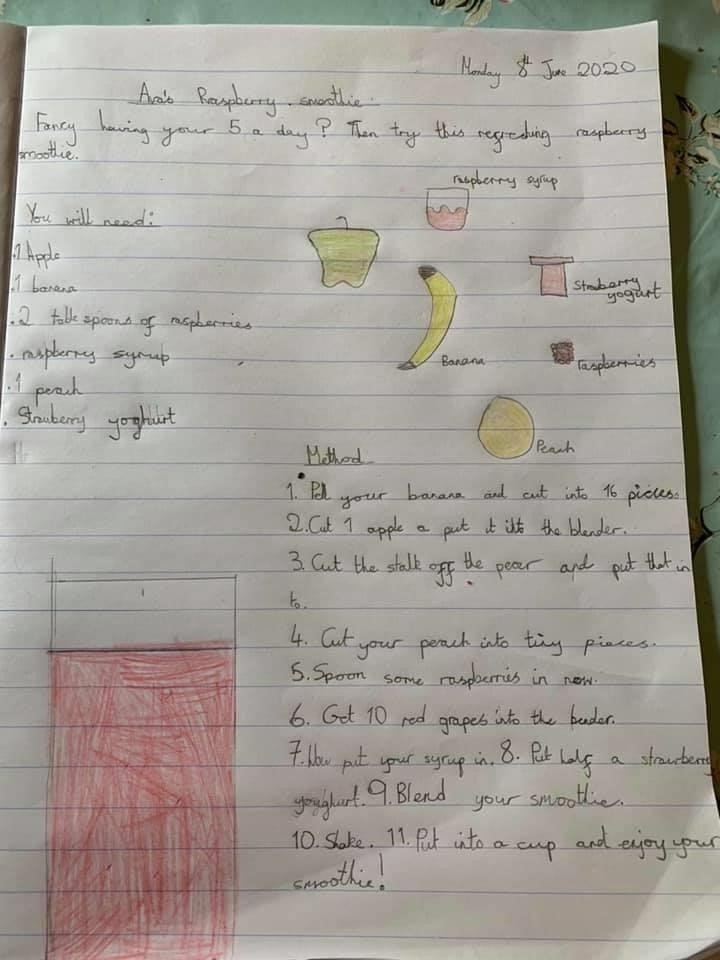 Monday 8th June 2020
Ava's Raspberry smoothie
Fancy having your 5 a day? Then try this refreshing raspberry
smoothie.
raspberry syrup
You will need:
.1 Apple
.1 banana
Strawberry
yogurt
.2 table spoons of raspberries
. raspberry syrup
Banana
raspberries
.1 peach
. Strauberry yoghurt
Peach
Method
1. Pell your banana and cut into 16 picies.
2. Cut 1 apple a put it into the blender.
3. Cut the stalk off the pear and put that in
to.
4. Cut your peach into tiny pieces.
5. Spoon some raspberries in now.
6. Get 10 red grapes into the bender.
7. Now put your syrup in. 8. Put half a strawberry
yoyghurt. 9. Blend your smoothie.
10. Shake. 11. Put into a cup and enjoy your
smoothie!